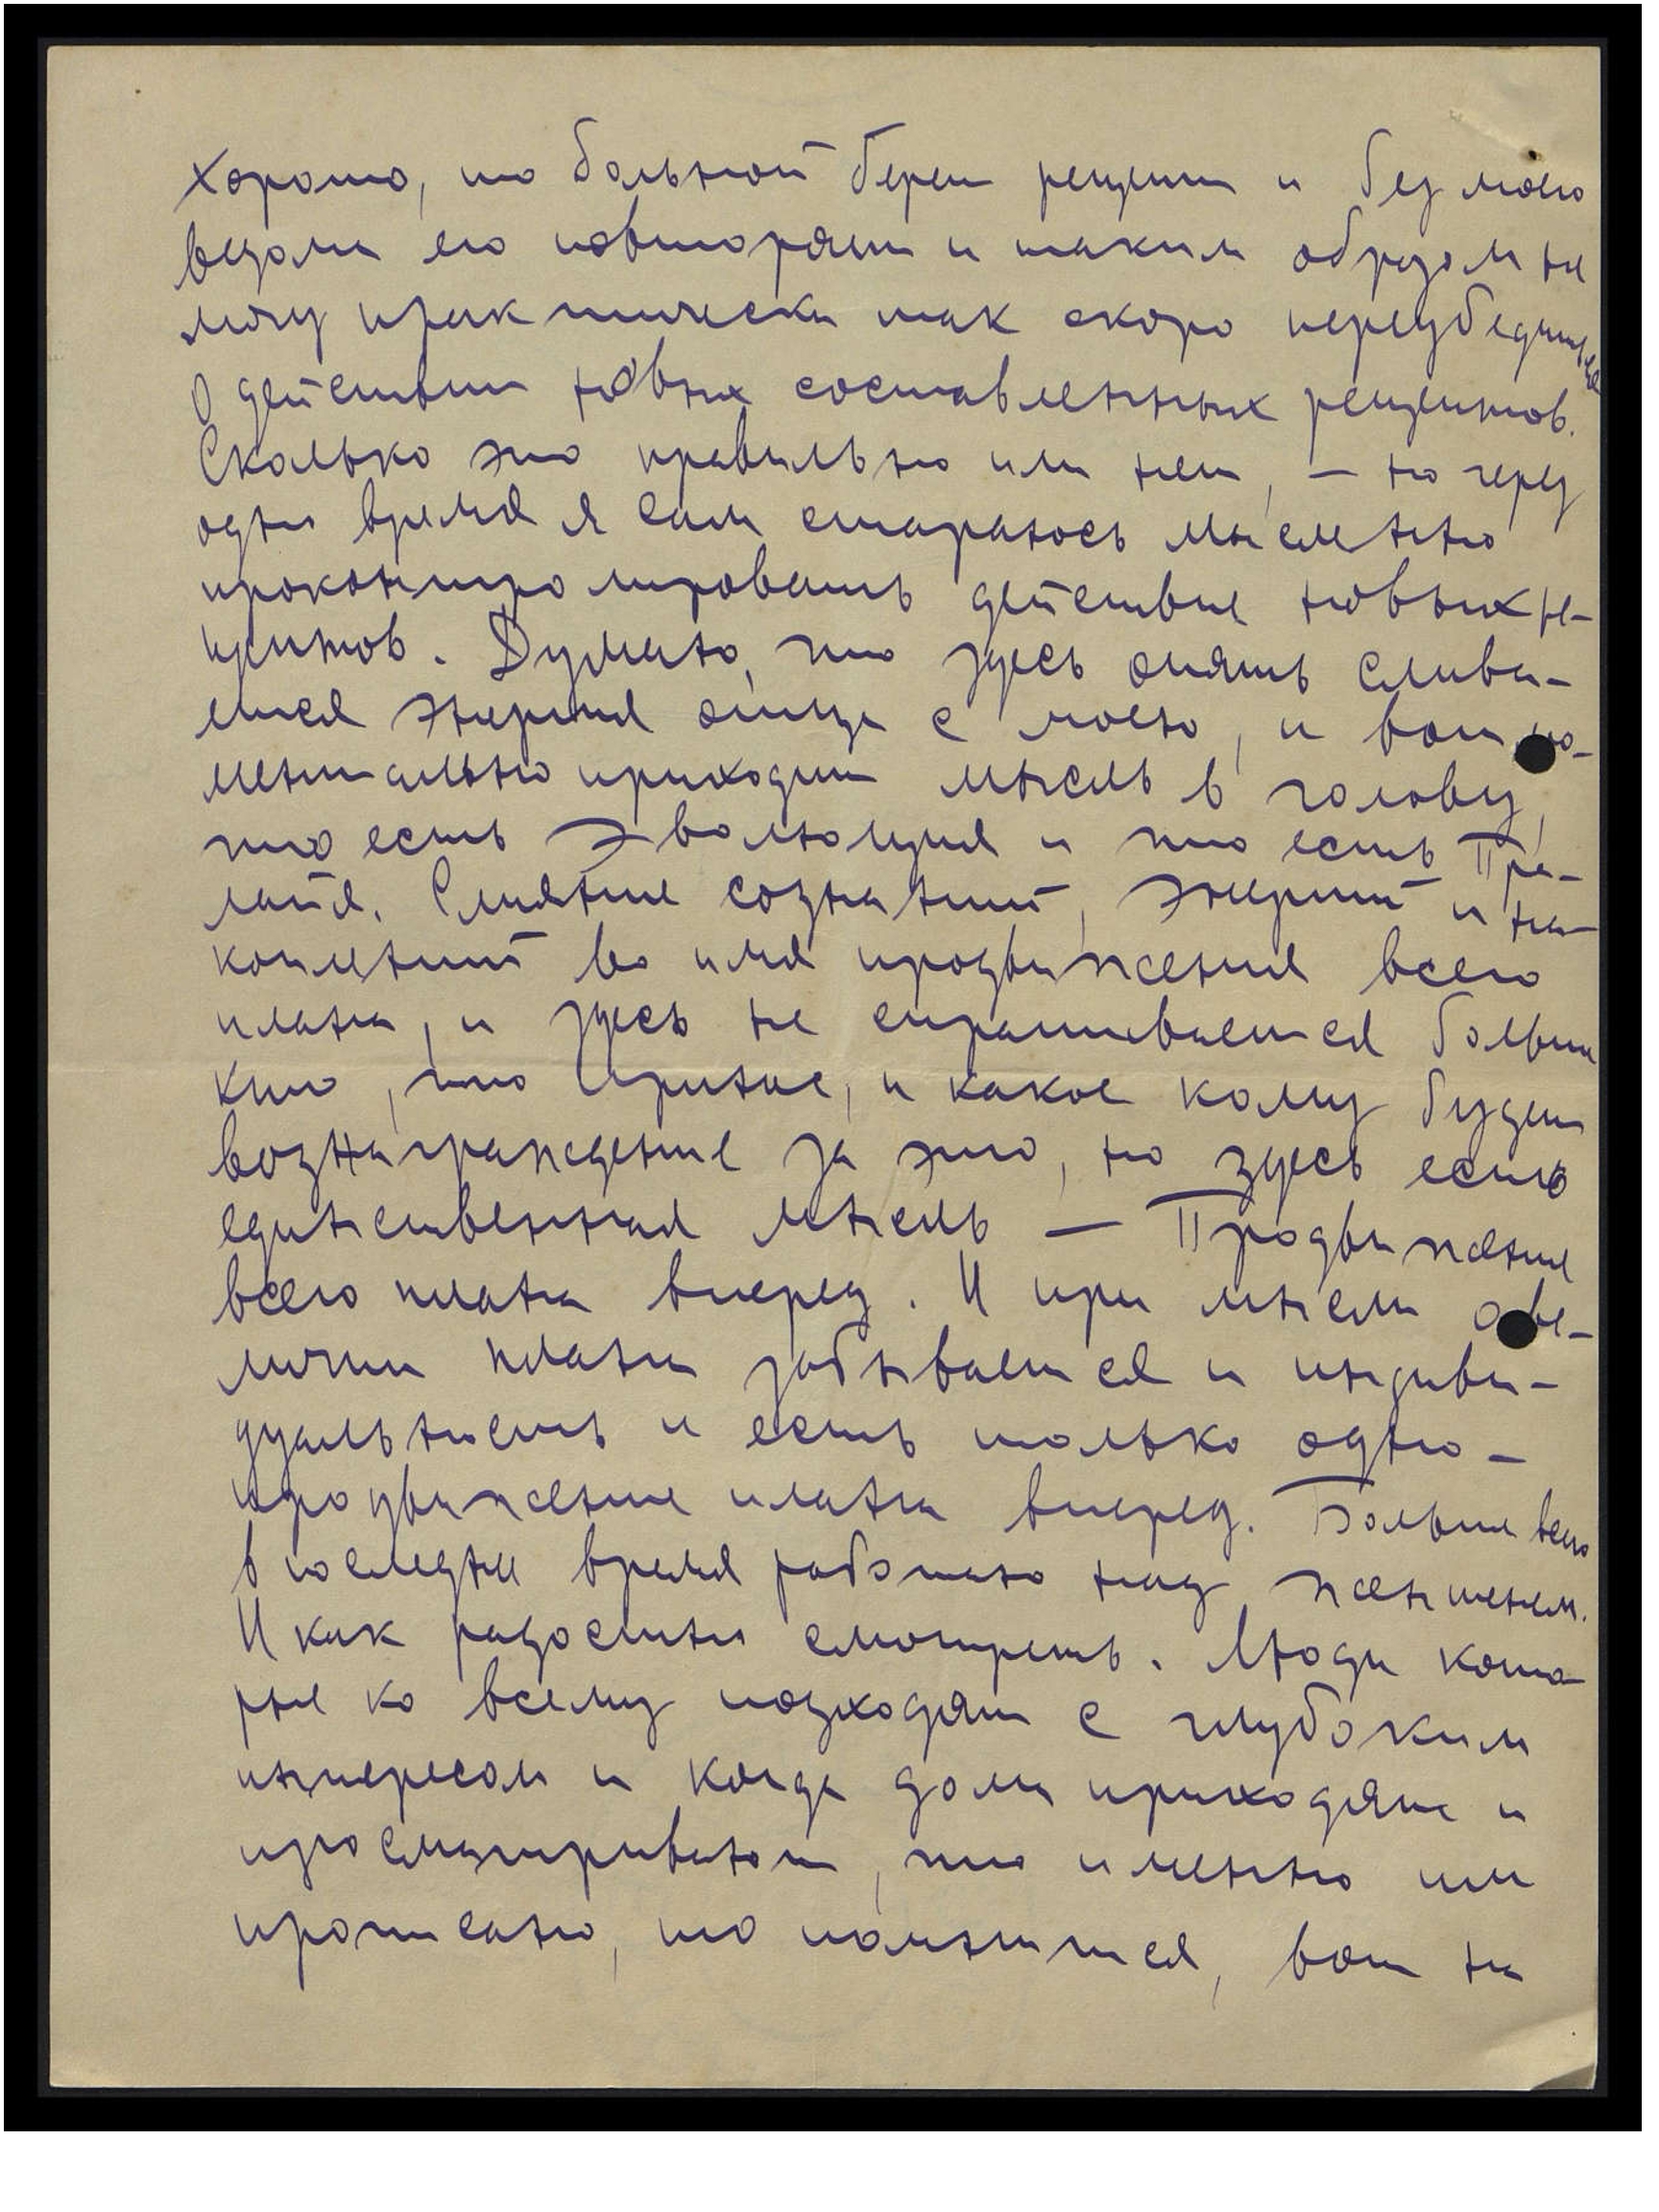 хорошо, то больной берет рецепт и без моего
ведома его повторяет и таким образом не
могу практически так скоро переубедиться
о действии новых составленных рецептов.
Сколько это правильно или нет, — но через
одно время я сам стараюсь мысленно
проконтролировать действие новых ре-
цептов. Думаю, что здесь опять слива-
ется энергия отца с моею, и вот мо-
ментально приходит мысль в голову,
что есть Эволюция и что есть Пра-
лайя. Слияние сознаний, энергий и на-
коплений во имя продвижения всего
плана, и здесь не спрашивается больше
кто, что принес, и какое кому будет
вознаграждение за это, но здесь есть
единственная мысль — Продвижение
всего плана вперед. И при мысли о ве-
личии плана забывается и индиви-
дуальность и есть только одно —
продвижение плана вперед. Больше всего
в последнее время работаю над женшенем.
И как радостно смотреть. Люди кото-
рые ко всему подходят с глубоким
интересом и когда дома приходят и
просматривают, что именно им
прописано, то получится, вот на